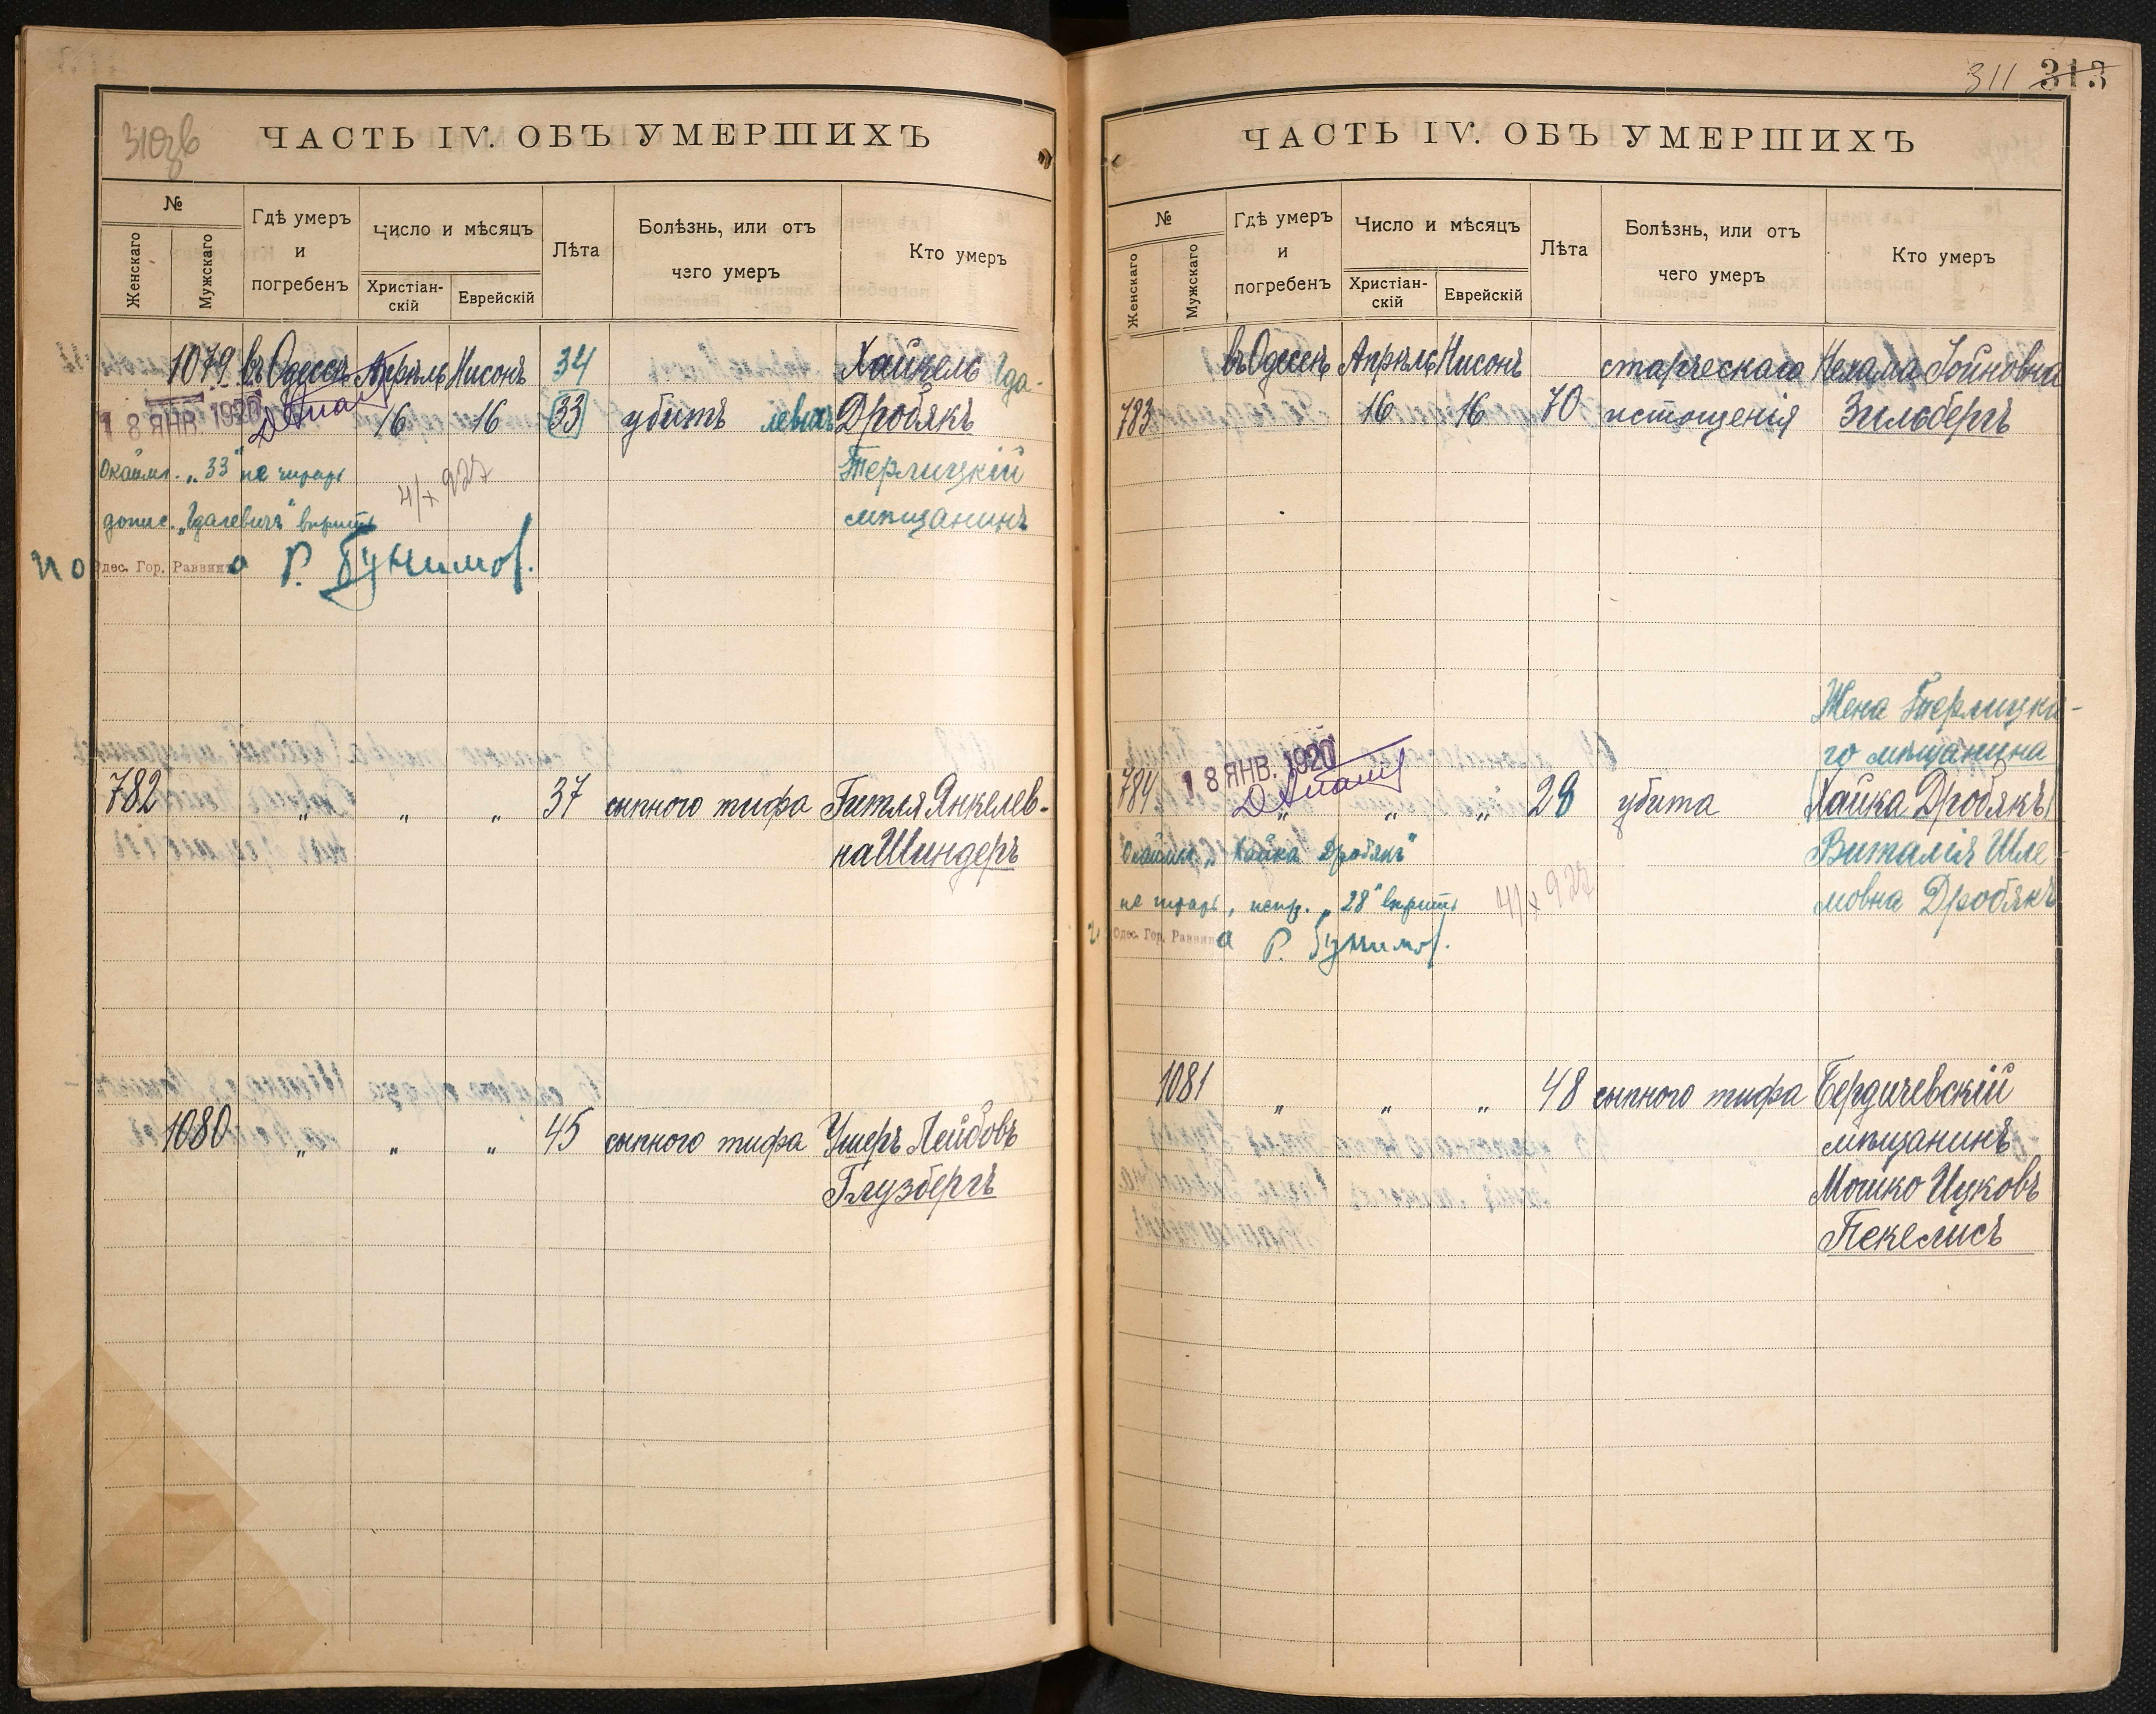 310зв
ЧАСТЬ IV. ОБЪ УМЕРШИХЪ
№
Женскаго
Мужскаго
Гдѣ умеръ
и
погребенъ
Число и мѣсяцъ
Христіан-
скій
Еврейскій
Лѣта
Болѣзнь, или отъ
чего умеръ
Кто умеръ
1079 въ Одессѣ Апрѣль Нисонъ 34 Хайкель Гда-
18 ЯНВ. 1920 16 16 33 убитъ левичъ Дробякъ
Окаймл. „33" не читать Терлицкій
4/X 927
допис. „Гдалевичъ" вѣрить мѣщанинъ
И о Одес. Гор. Раввина Р. Бунимов.
782 „ „ „ 37 сыпного тифа Гитля Янкелев-
на Шиндеръ
1080 „ „ „ 45 сыпного тифа Ушеръ Лейбовъ
Глузбергъ
311 313
ЧАСТЬ IV. ОБЪ УМЕРШИХЪ
№
Женскаго
Мужскаго
Гдѣ умеръ
и
погребенъ
Число и мѣсяцъ
Христіан-
скій
Еврейскій
Лѣта
Болѣзнь, или отъ
чего умеръ
Кто умеръ
въ Одессѣ Апрѣль Нисонъ старческаго Нехама Іойновна
783 16 16 70 истощенія Зильбергъ
Жена Терлицка-
го мѣщанина
18 ЯНВ. 1920
784 „ „ „ 28 убита Хайка Дробякъ
Окаймл. „Хайка Дробякъ" Виталія Шле-
не читать, испр. „28" вѣрить 4/X 927 мовна Дробякъ
Одес. Гор. Раввина Р. Бунимов.
1081 „ „ „ 48 сыпного тифа Бердичевскій
мѣщанинъ
Мошко Ицковъ
Пекелисъ